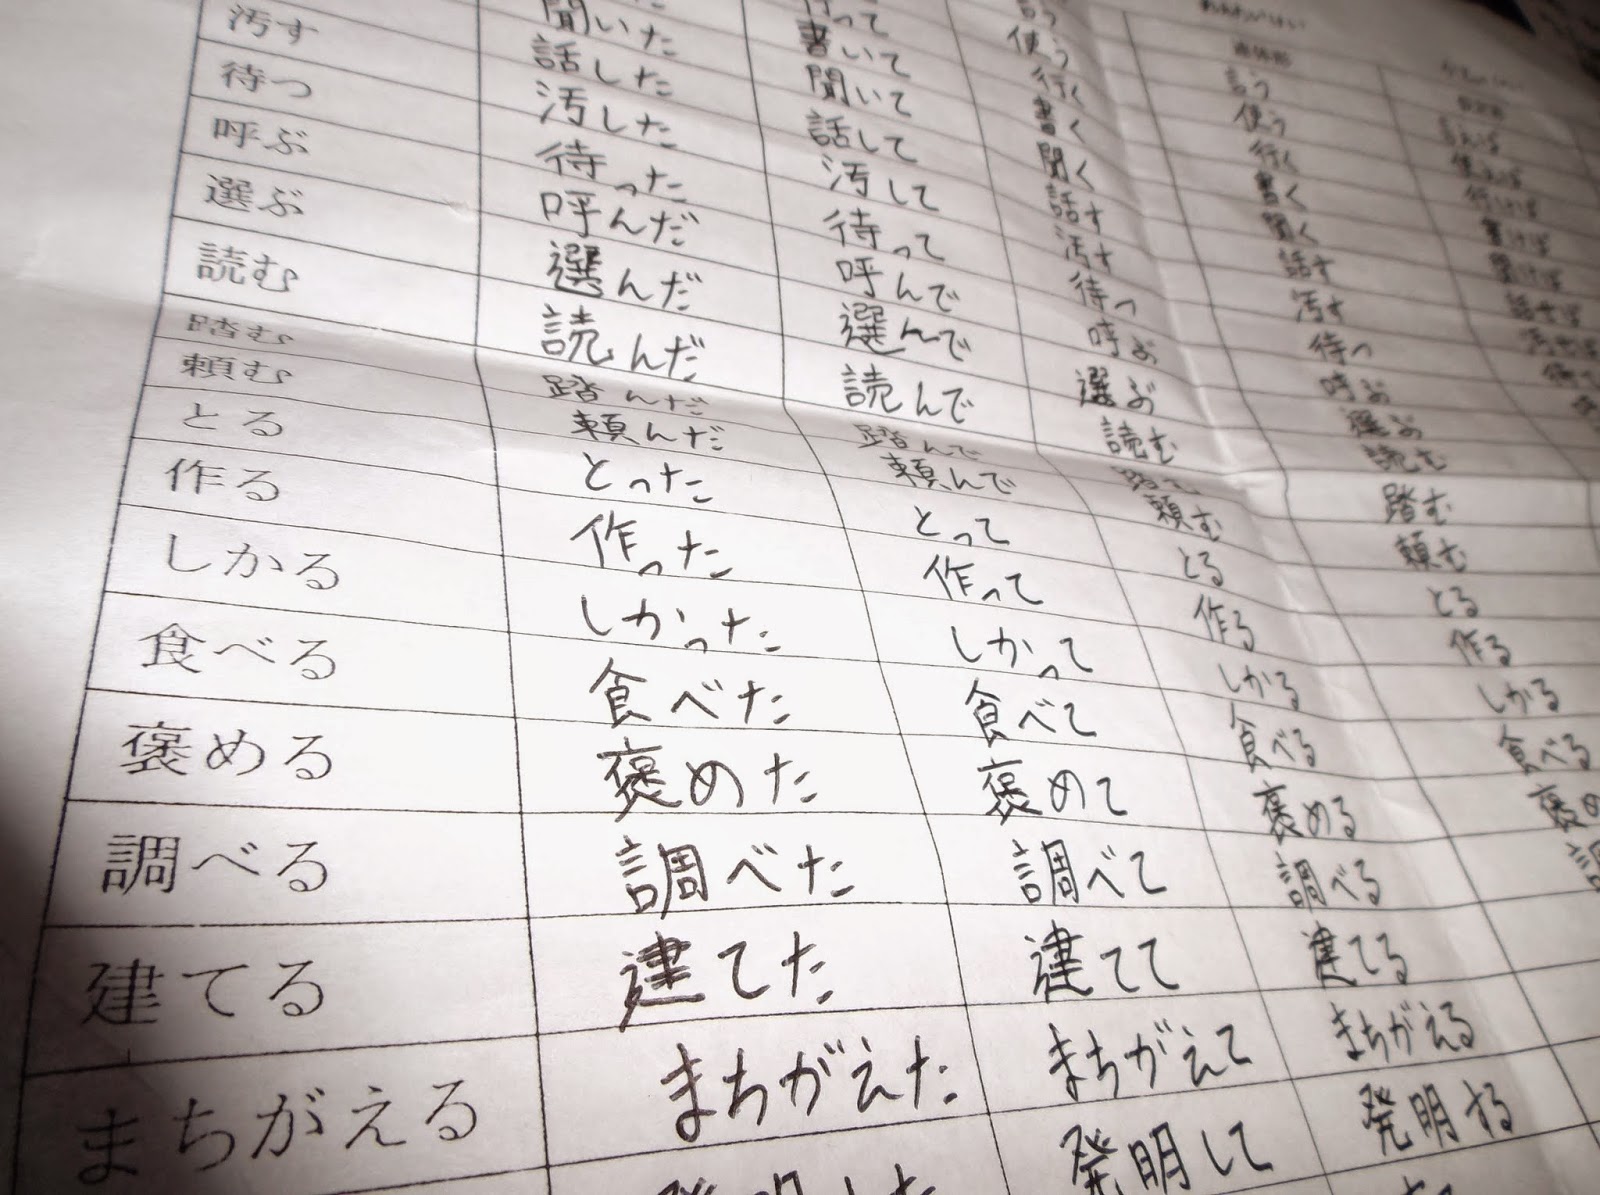 聞いた 行って 言う
汚す 話した 書いて 使う 連体形
待つ 汚した 聞いて 行く 言う
呼ぶ 待った 話して 書く 使う
選ぶ 呼んだ 汚して 聞く 行く
読む 選んだ 待って 話す 書く 行けば
踏む 読んだ 呼んで 汚す 聞く 書けば
頼む 踏んだ 選んで 待つ 話す 聞けば
とる 頼んだ 読んで 呼ぶ 汚す 話せば
作る とった 踏んで 選ぶ 待つ 汚せば
しかる 作った 頼んで 読む 呼ぶ
食べる しかった とって 踏む 選ぶ
褒める 食べた 作って 頼む 読む
調べる 褒めた しかって とる 踏む
建てる 調べた 食べて 作る 頼む
まちがえる 建てた 褒めて しかる とる
まちがえた 調べて 食べる 作る
発明した 建てて 褒める しかる
まちがえて 調べる 食べる
発明して 建てる 褒め
まちがえる
発明する